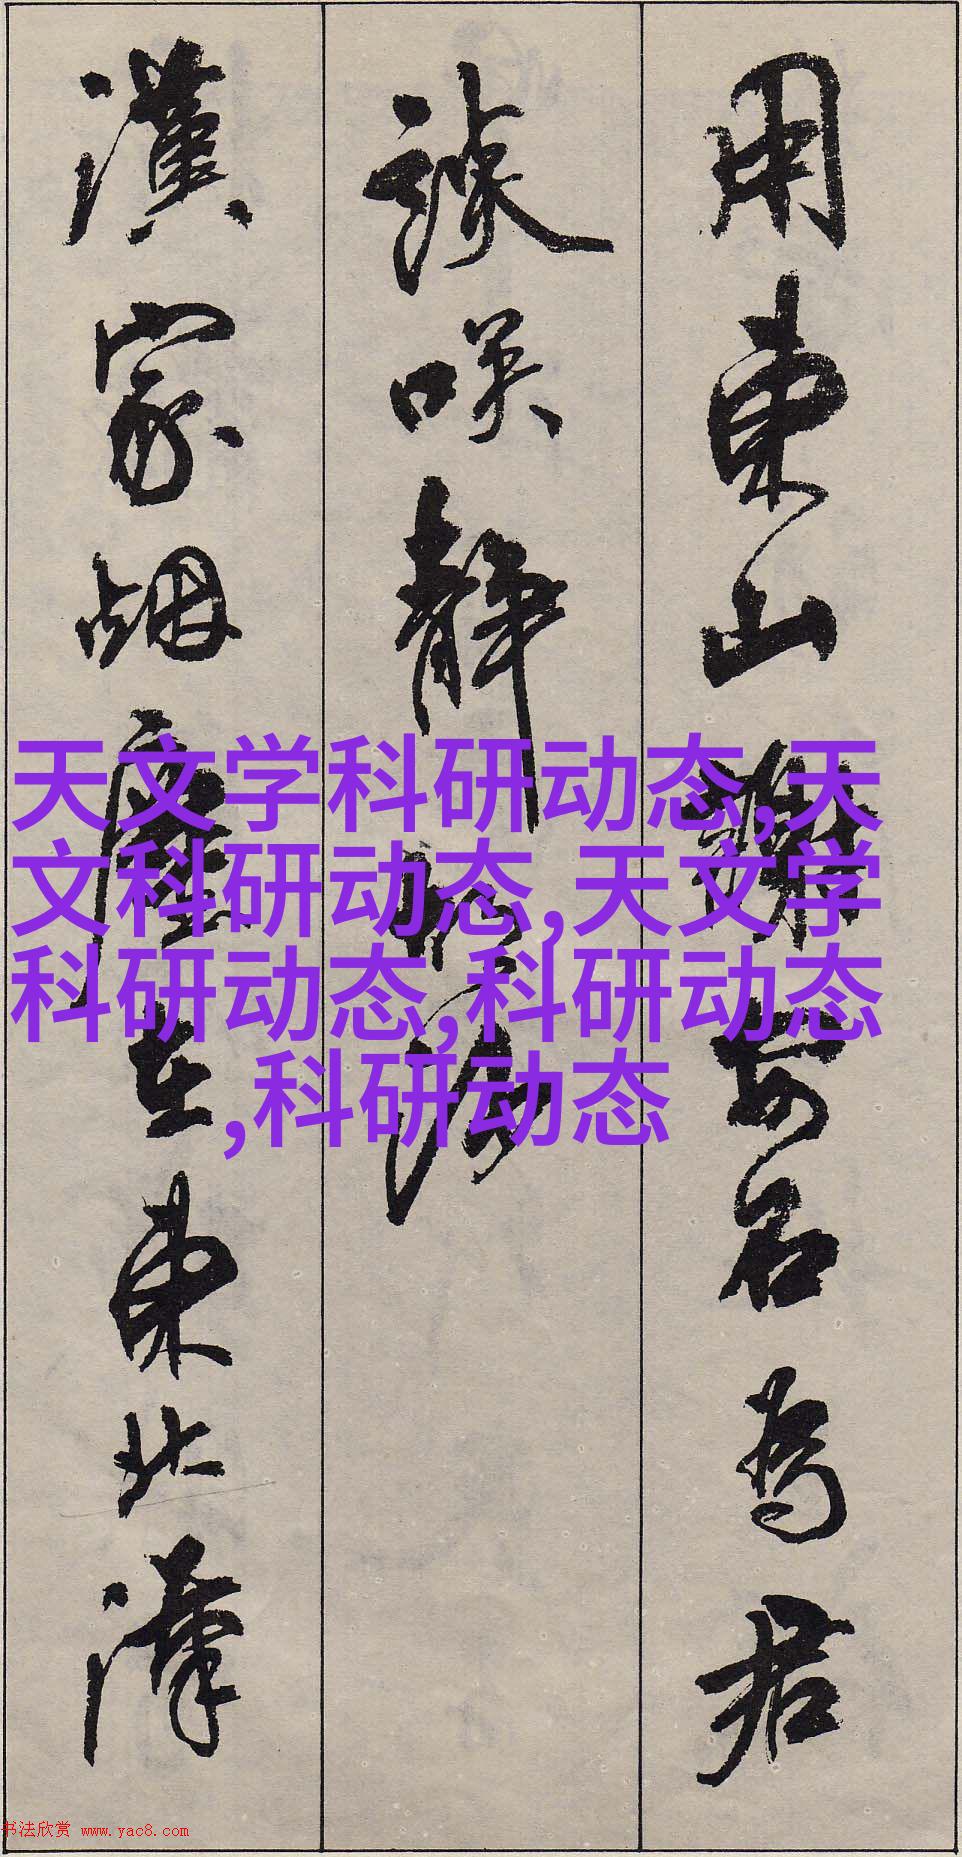 用東山謝安石為君
談笑静胡沙
漢家烟塵在東北漢
天文学科研动态,天
文科研动态,天文学
科研动态,科研动态
,科研动态
书法欣赏 www.yac8.com